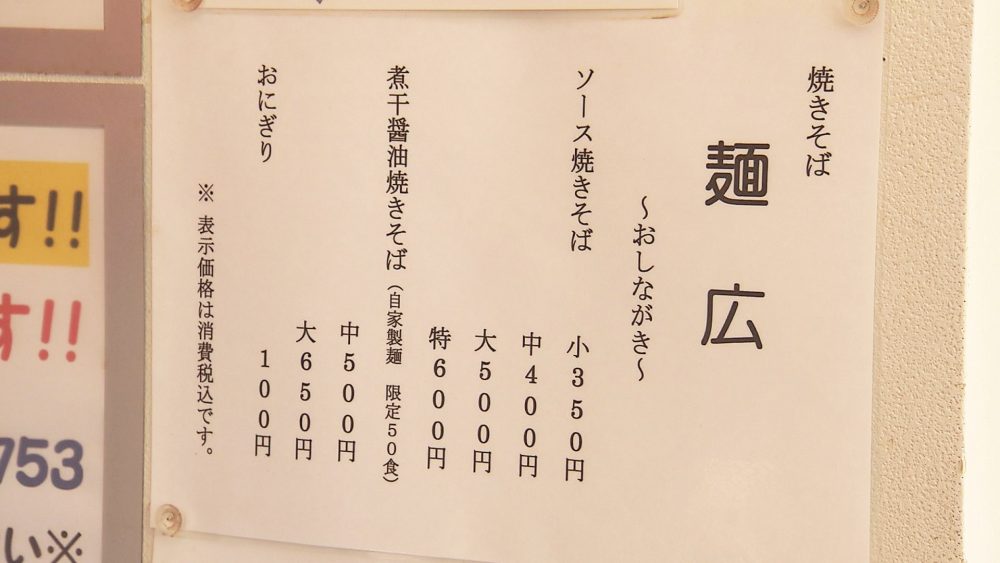 焼きそば
麺広
～おしながき～
ソース焼きそば
小350円
中400円
大500円
特600円
煮干醤油焼きそば（自家製麺 限定50食）
中500円
大650円
おにぎり
100円
※ 表示価格は消費税込です。
す!!
す!!
753
い※